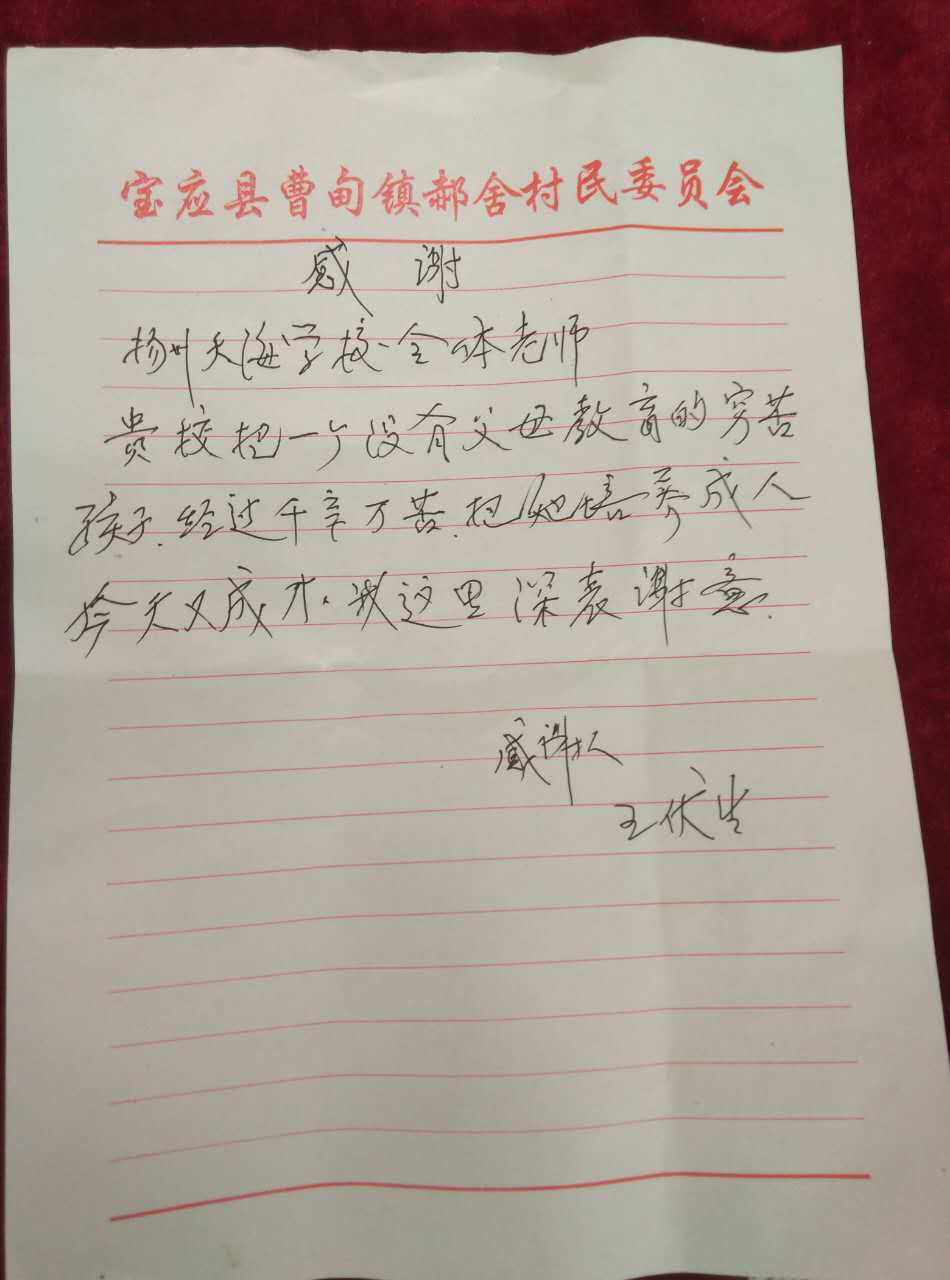 宝应县曹甸镇郝舍村民委员会
感 谢
扬州大海学校全体老师
贵校把一个没有父母教育的穷苦
孩子.经过千辛万苦.把她培养成人
今天又成才.我这里深表谢意.
感谢人
王伏生